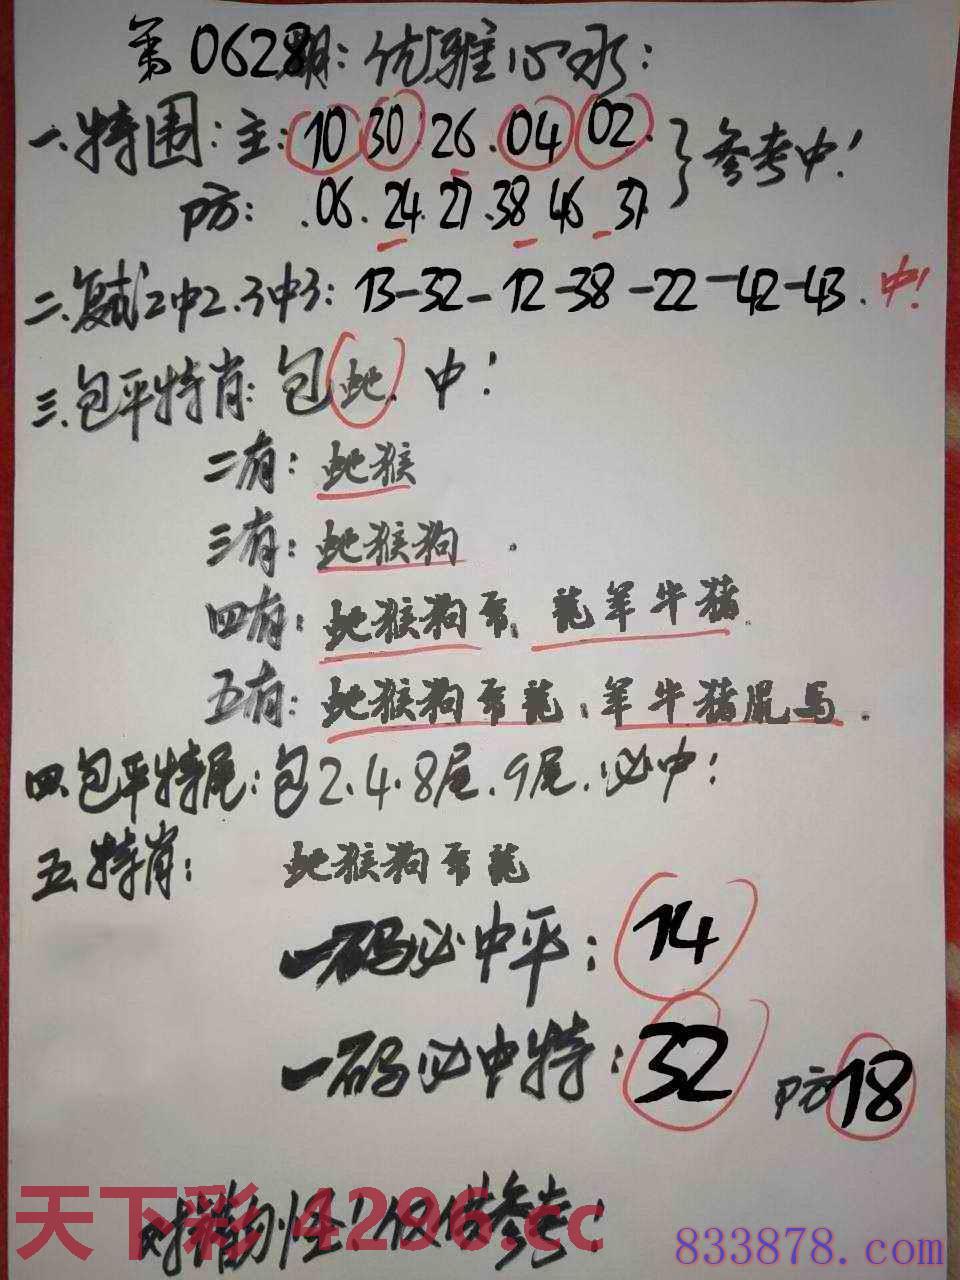 第0628期:优雅心水:
一.特围:主:10 30 26.04 02.
防:.06.24.27.38 46.37
}参考中!
二.复式2中2.3中3:13-32-12-38-22-42-43.中!
三.包平特肖:包蛇.中!
二有:蛇猴
三有:蛇猴狗.
四有:蛇猴狗.龍羊牛猪.
五有:蛇猴狗龍:羊牛猪鼠马.
四.包平特尾:包2.4.8尾.9尾.必中!
五.特肖:蛇猴狗龍
一码必中平:14
一码必中特:32 防18
天下彩 4296.cc
仅供参考!
833878.com